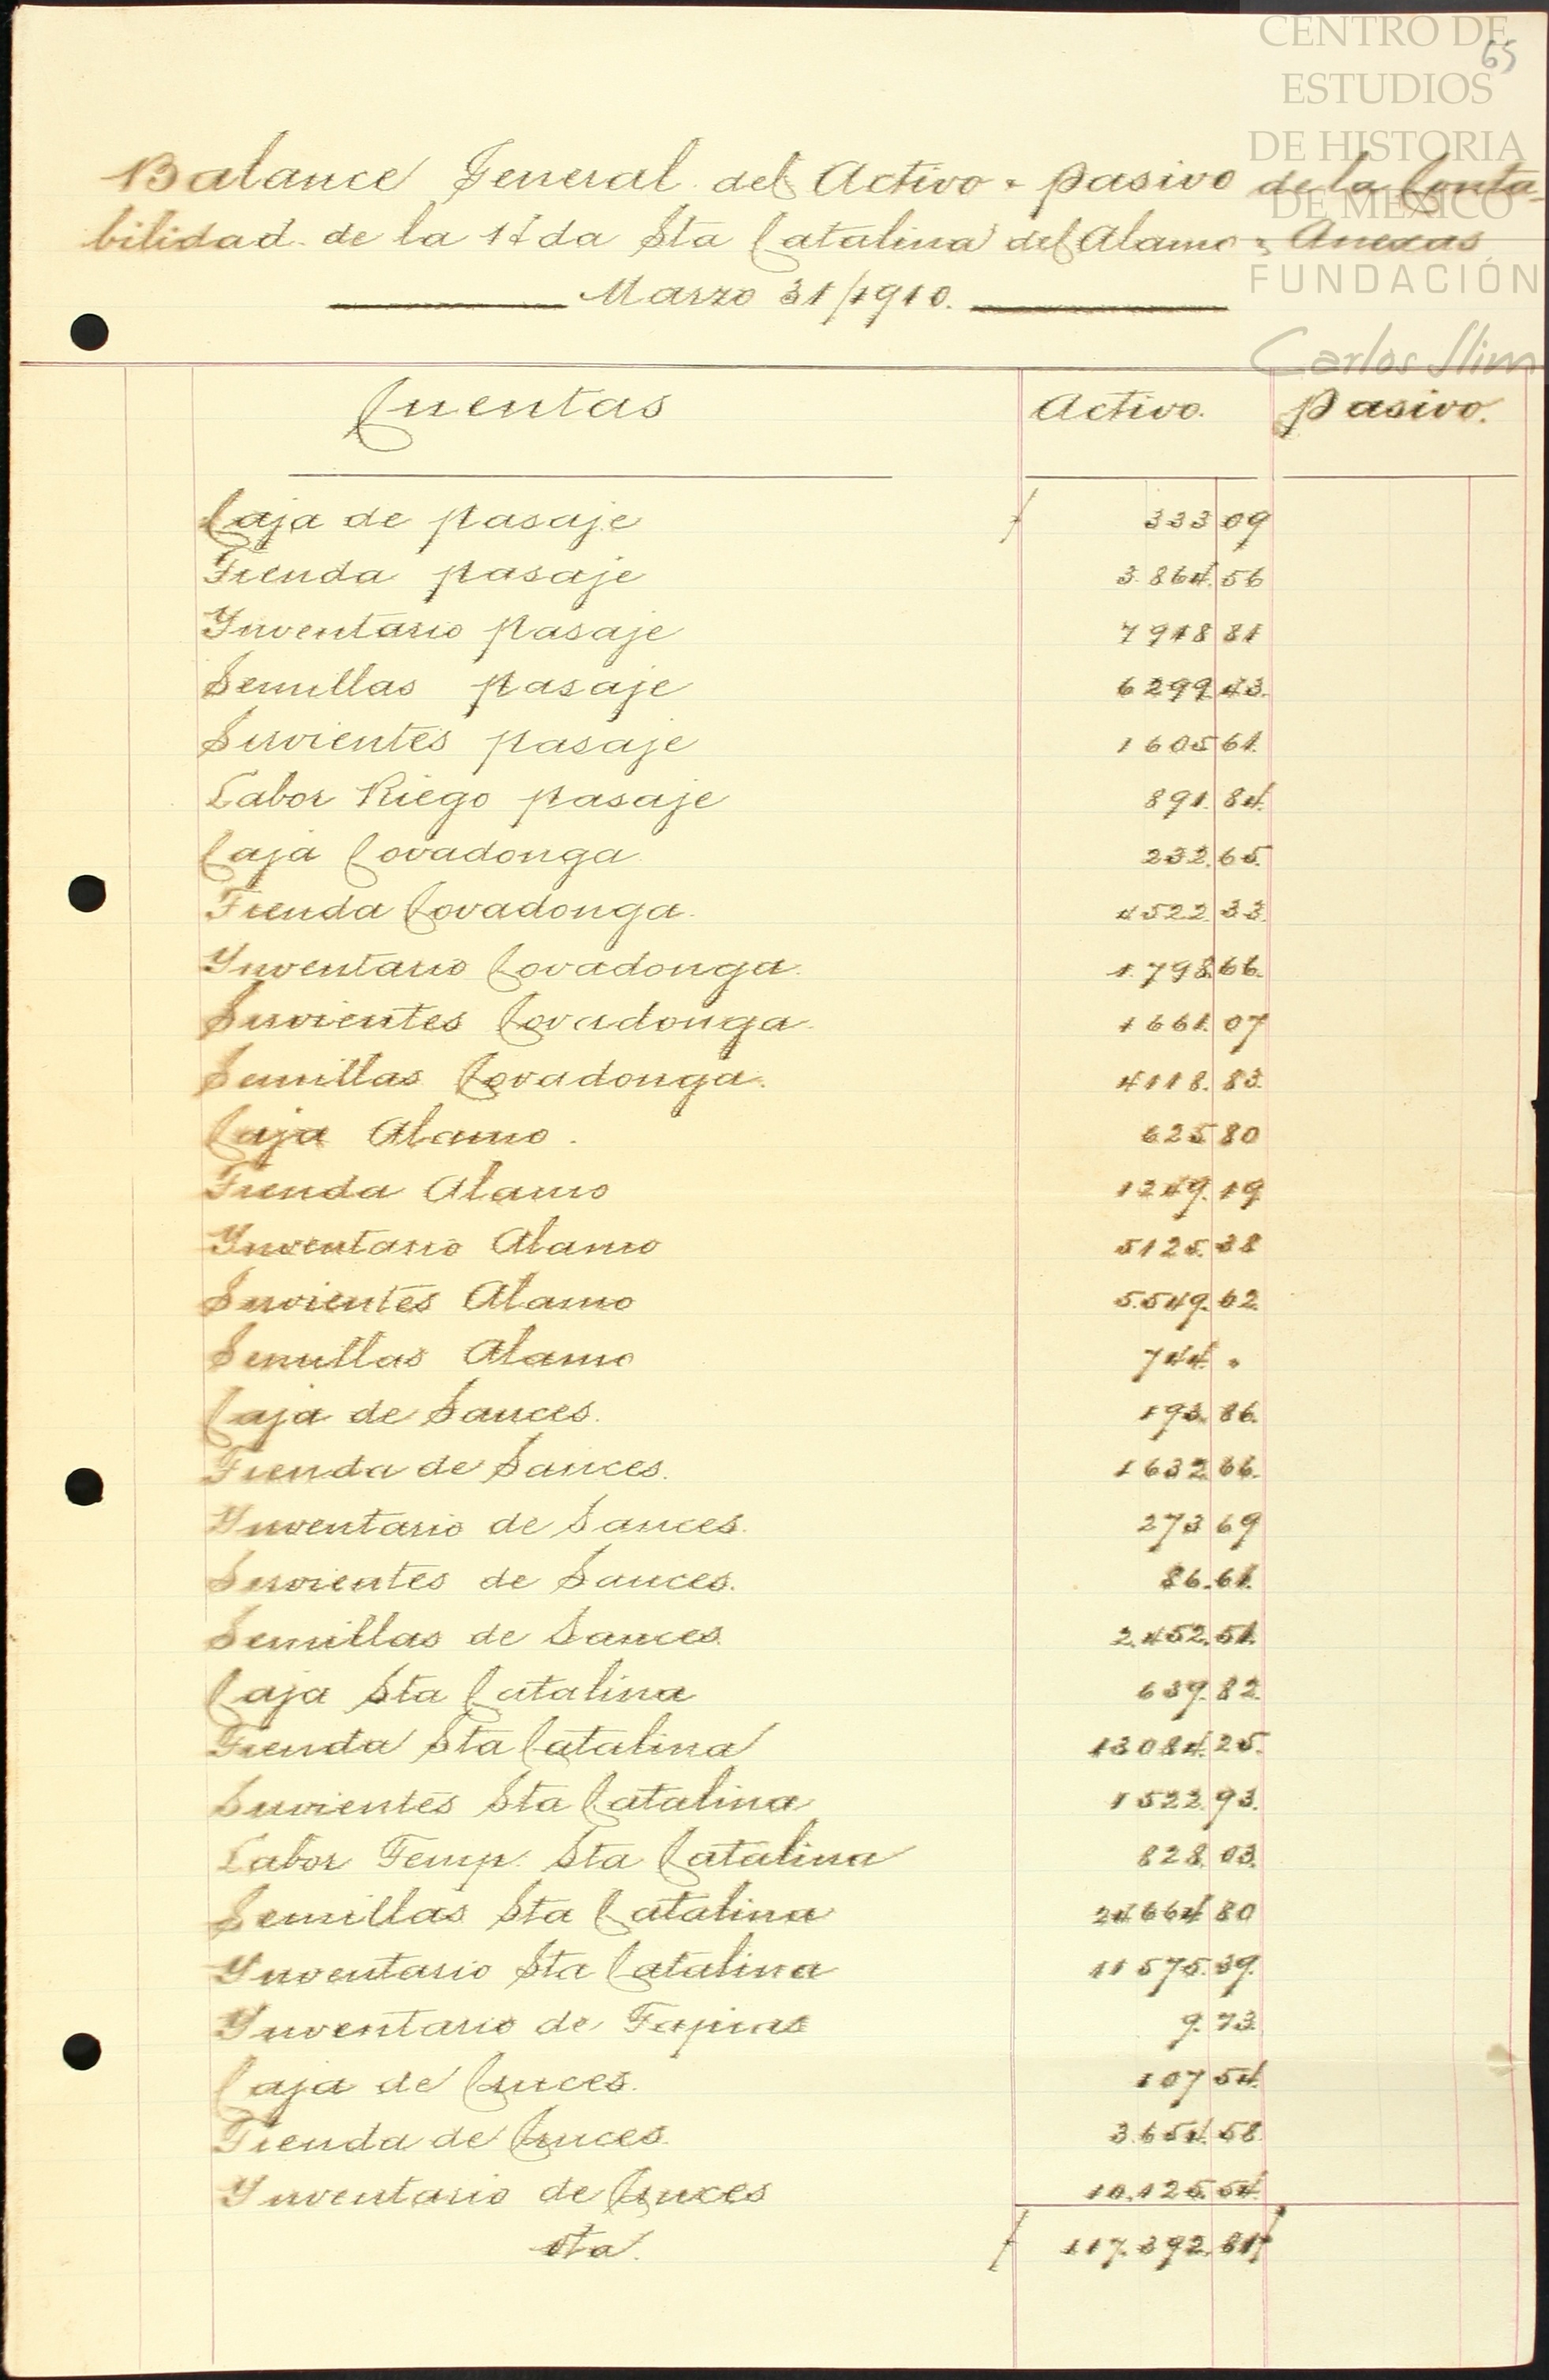 CENTRO DE
ESTUDIOS
DE HISTORIA
DE MEXICO
FUNDACIÓN
Carlos Slim
65
Balance General del Activo y Pasivo de la Conta-
bilidad de la Hda Sta Catalina del Alamo y Anexas
Marzo 31/1910.
Cuentas Activo. Pasivo.
Caja de Pasaje $ 333 09
Tienda Pasaje 3.864.56
Inventario Pasaje 7918 81
Semillas Pasaje 6299.43.
Sirvientes Pasaje 1605 61.
Labor Riego Pasaje 891.84.
Caja Covadonga 232.65.
Tienda Covadonga. 4522.33.
Inventario Covadonga. 1.798.66.
Sirvientes Covadonga. 1661.07
Semillas Covadonga. 4118.83.
Caja Alamo. 625 80
Tienda Alamo 1249.19
Inventario Alamo 5125.38
Sirvientes Alamo 5.549.62.
Semillas Alamo 744. "
Caja de Sauces. 193.86.
Tienda de Sauces. 1632.66.
Inventario de Sauces. 273 69
Sirvientes de Sauces. 86.61.
Semillas de Sauces. 2.452.51.
Caja Sta Catalina 639.82.
Tienda Sta Catalina 13084.25.
Sirvientes Sta Catalina 1522.93.
Labor Temp. Sta Catalina 828.03.
Semillas Sta Catalina 24664 80
Inventario Sta Catalina 11575.39.
Inventario de Tapias 9.73.
Caja de Cruces. 107 54.
Tienda de Cruces. 3.654.58.
Inventario de Cruces 10.125.54.
vta. $ 117.392.81